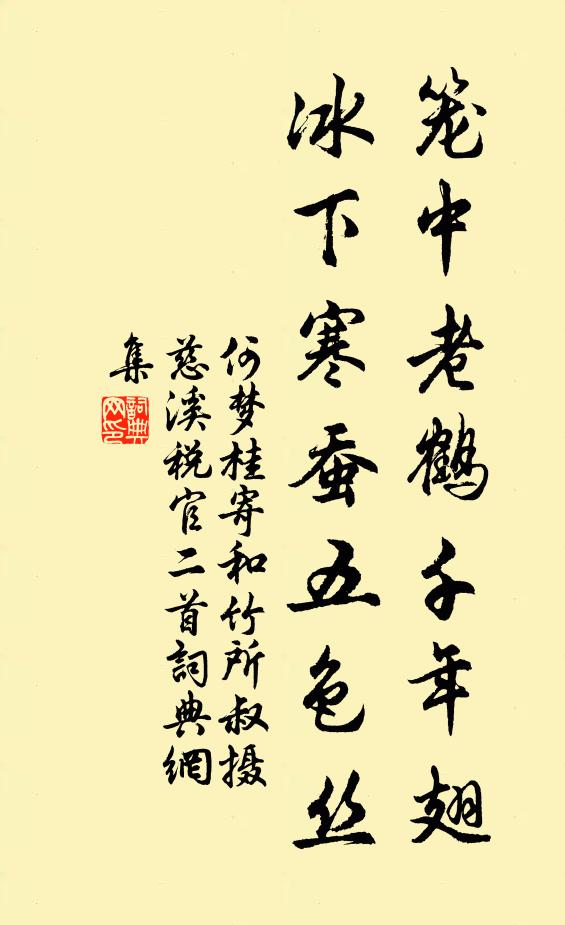 笼中老鹤千年翅
冰下寒蚕五色丝
何梦桂寄和竹所叔摄
慈溪税官二首詞典網
集
詞典
网印